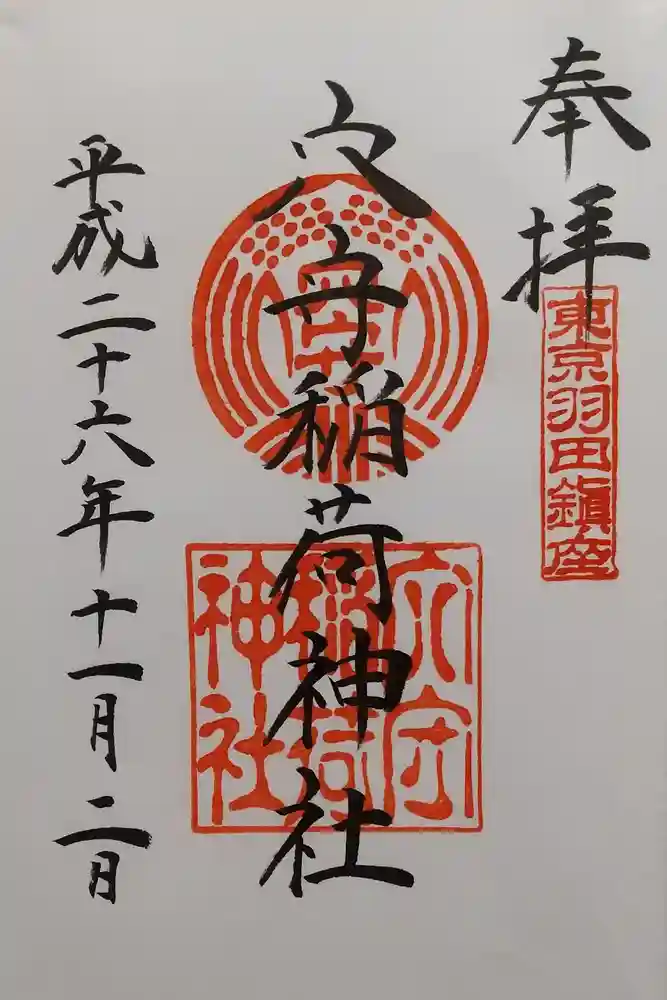 奉拝
東京羽田鎮座
穴守稲荷神社
穴守
稲荷
神社
平成二十六年十一月二日